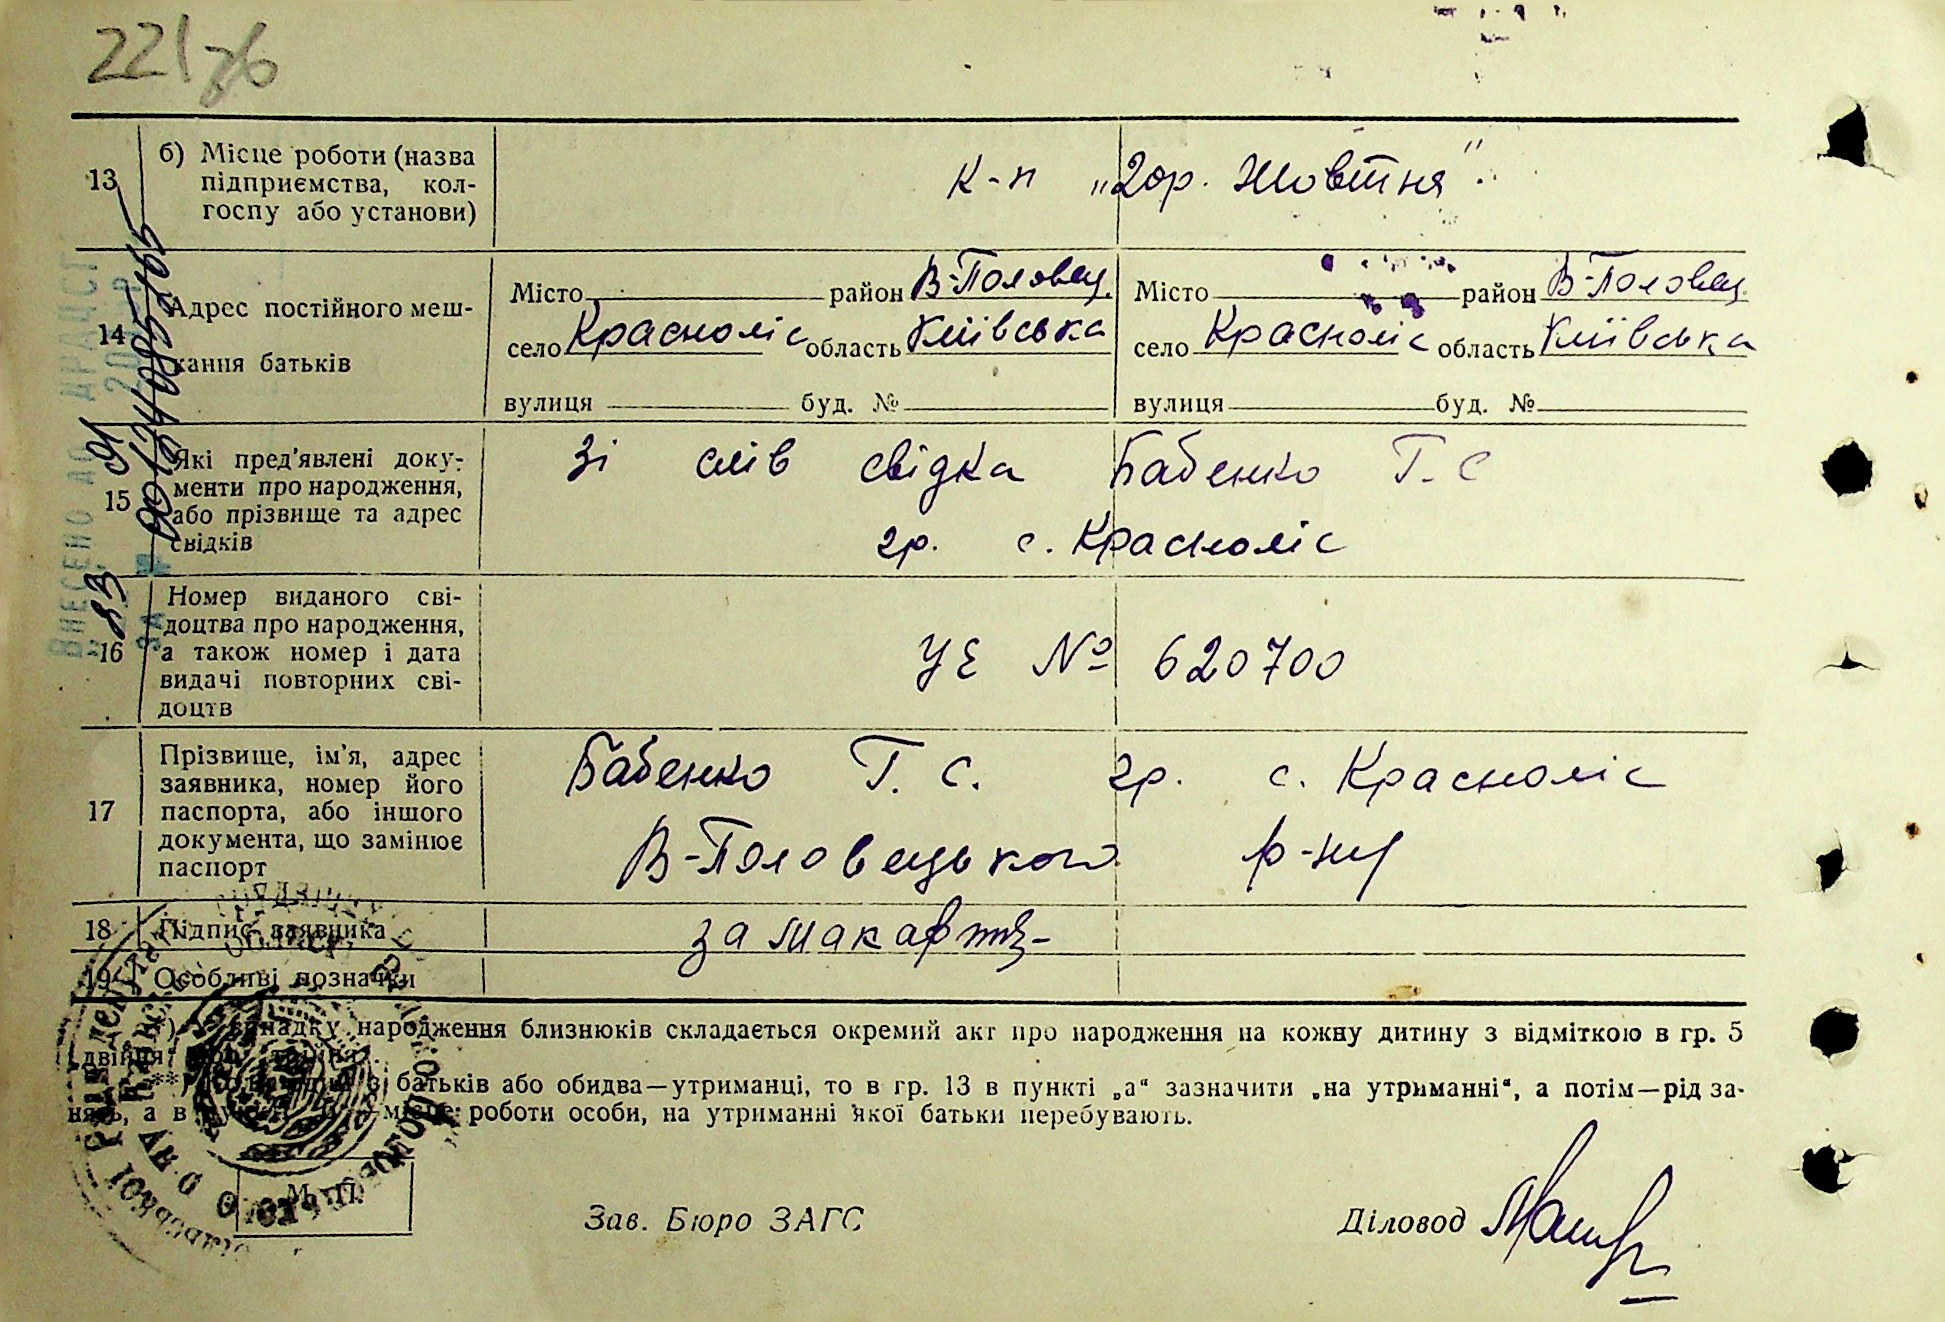 22/76
13 б) Місце роботи (назва
підприємства, кол-
госпу або установи)
К-п „20р. Жовтня"
14 Адрес постійного меш-
кання батьків
Місто район В-Половец.
село Красноліс область Київська
вулиця буд. №
Місто район В-Половец.
село Красноліс область Київська
вулиця буд. №
15 Які пред'явлені доку-
менти про народження,
або прізвище та адрес
свідків
Зі слів свідка Бабенко Г. С
гр. с. Красноліс
16 Номер виданого сві-
доцтва про народження,
а також номер і дата
видачі повторних сві-
доцтв
УЕ № 620700
17 Прізвище, ім'я, адрес
заявника, номер його
паспорта, або іншого
документа, що замінює
паспорт
Бабенко Г. С. гр. с. Красноліс
В-Половецького р-ну
18 Підпис заявника
19 Особливі позначки
випадку народження близнюків складається окремий акт про народження на кожну дитину з відміткою в гр. 5
батьків або обидва—утриманці, то в гр. 13 в пункті „а“ зазначити „на утриманні“, а потім—рід за-
нять, а в місце роботи особи, на утриманні якої батьки перебувають.
М. П.
Зав. Бюро ЗАГС
Діловод
ВНЕСЕНО ДО ДРАЦСГ